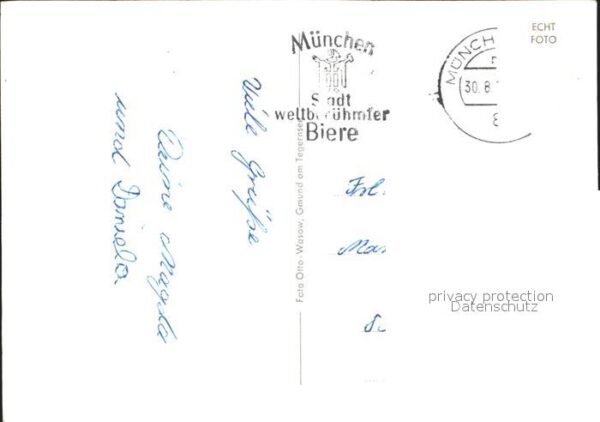 ECHT
FOTO
München
Stadt
weltberühmter
Biere
MÜNCH
30.8.
8
Viele Grüße
Deine Magda
und Daniela
Foto Otto-Wasow, Gmund am Tegernsee
Frl.
privacy protection
Datenschutz